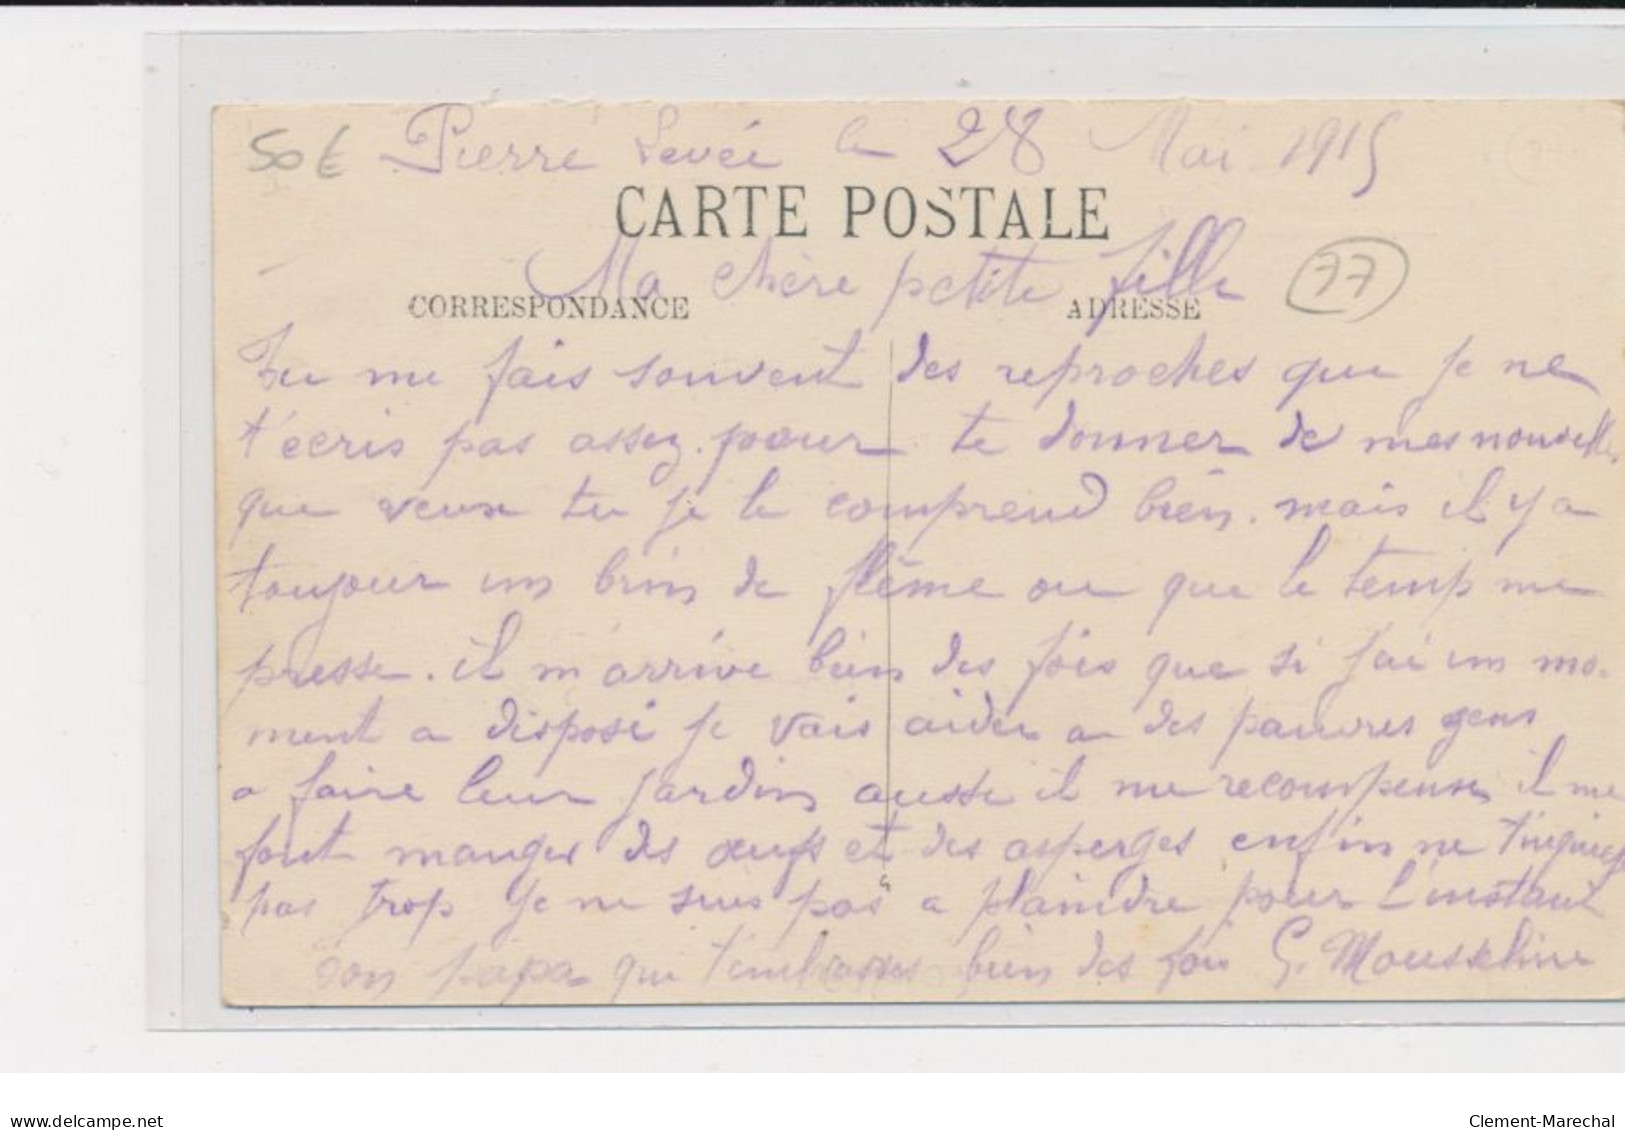 50 € Pierre Levée le 28 Mai 1915
CARTE POSTALE
Ma chère petite fille 77
CORRESPONDANCE ADRESSE
Tu me fais souvent des reproches que je ne
t'écris pas assez. pour te donner de mes nouvelles
que veux tu je le comprend bien. mais il y a
toujour un brin de flême ou que le temp me
presse. il m'arrive bien des fois que si j'ai un mo-
ment a disposé je vais aider a des pauvres gens
a faire leur jardin aussi il me recompense, il me
font manger des œufs et des asperges enfin ne t'inquiet
pas trop je ne suis pas a plaindre pour l'instant
ton papa qui t'embrasses bien des fois G. Mousseline
www.delcampe.net
Clement-Marechal